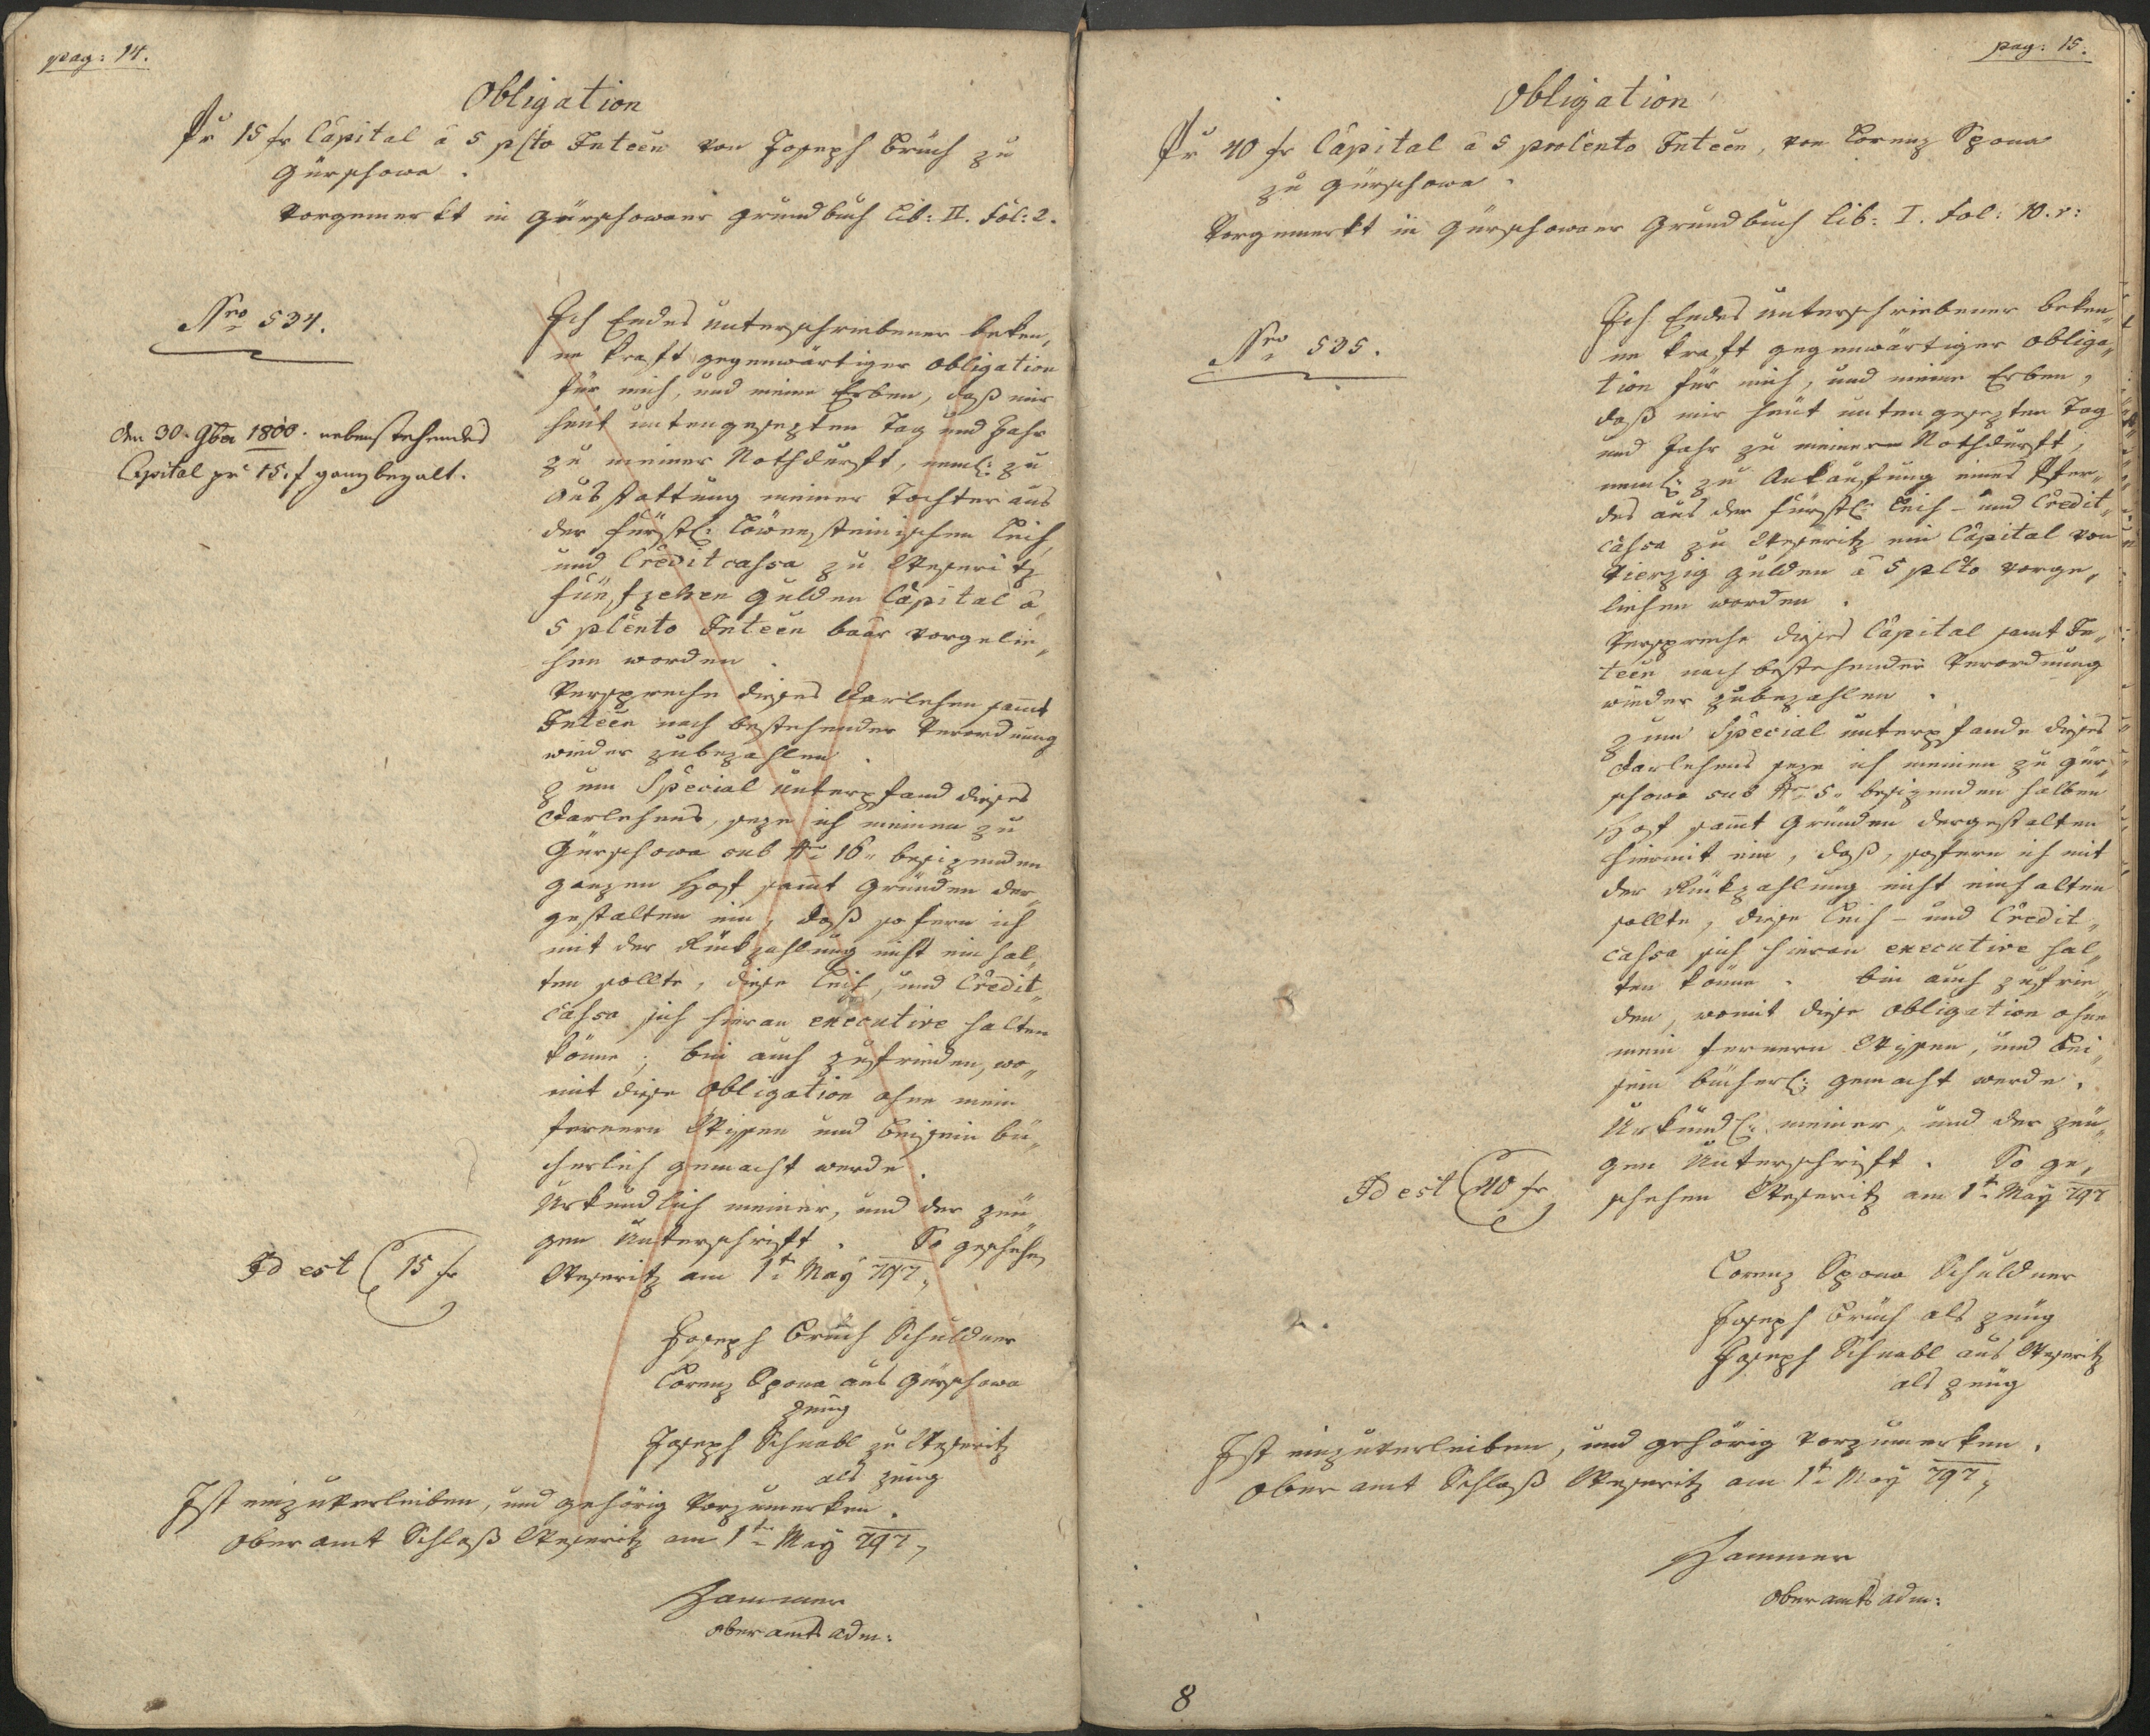 pag: 14.
Obligation
Pr 15 fr Capital â 5 pcto Inteen von Joseph Bruch zu
Gürschowa.
Vorgemerkt in Gürschowaer Grundbuch Lib: II. Fol: 2.
Nro 534.
den 30. 9ber 1800. nebenstehendes
Capital pr 15. f ganz bezalt.
Ich Endes unterschriebener beken„
ne kraft gegenwärtiger Obligation
für mich, und meine Erben, daß mir
heut untengesezten Tag und Jahr
zu meiner Nothdurft, neml: zu
Ausstattung meiner Tochter aus
der fürstl: Löwensteinischen Leih„
und Creditcassa zu Weseritz
fünfzehen Gulden Capital â
5 pcento Inteen baar vorgelie„
hen worden.
Verspreche dieses Darlehen samt
Inteen nach bestehender Verordnung
wieder zubezahlen.
Zum Special Unterpfand dieses
Darlehens, seze ich meinen zu
Gürschowa sub Nro 16 besizenden
ganzen Hof samt Gründen der„
gestalten ein, daß sofern ich
mit der Rückzahlung nicht einhal„
ten sollte, diese Leih„ und Credit„
cassa sich hieran executive halten
könne; bin auch zufrieden, wo„
mit diese Obligation ohne mein
fernern Wissen und Beisein bü„
cherlich gemacht werde.
Urkundlich meiner, und der Zeu„
gen Unterschrift. So geschehen
Weseritz am 1t May 797„
Id est 15 fr
Joseph Bruch Schuldner
Lorenz Spona aus Gürschowa
Zeug
Joseph Schnabl zu Weseritz
als Zeug
Ist einzuverleiben, und gehörig vorzumerken.
Oberamt Schloß Weseritz am 1t May 797„
Hammer
Oberamts adm:
pag: 15.
Obligation
Pr 40 fr Capital â 5 procento Inteen, von Lorenz Spona
zu Gürschowa.
Vorgemerkt in Gürschowaer Grundbuch Lib: I. Fol: 10. r:
Nro 535.
Ich Endes unterschriebener beken„
ne kraft gegenwärtiger Obliga„
tion für mich, und meine Erben,
daß mir heut untengesezten Tag
und Jahr zu meiner Nothdurft,
neml: zu Ankaufung eines Pfer„
des aus der fürstl: Leih- und Credit„
cassa zu Weseritz ein Capital von
Vierzig Gulden â 5 pcto vorge„
liehen worden.
Verspreche dieses Capital samt In„
teen nach bestehender Verordnung
wieder zubezahlen.
Zum Special Unterpfande dieses
Darlehens seze ich meinen zu Gür„
schowa sub Nro 5. besizenden halben
Hof samt Gründen dergestalten
hiermit ein, daß, sofern ich mit
der Rückzahlung nicht einhalten
sollte, diese Leih- und Credit„
cassa sich hieran executive hal„
ten könne. Bin auch zufrie„
den, womit diese Obligation ohne
mein fernern Wissen, und Bei„
sein bücherl: gemacht werde.
Urkundl: meiner, und der Zeu„
gen Unterschrift. So ge„
schehen Weseritz am 1t May 797
Id est 40 fr
Lorenz Spona Schuldner
Joseph Bruch als Zeug
Joseph Schnabl aus Weseritz
als Zeug
Ist einzuverleiben, und gehörig vorzumerken.
Oberamt Schloß Weseritz am 1t May 797„
Hammer
Oberamts adm:
8